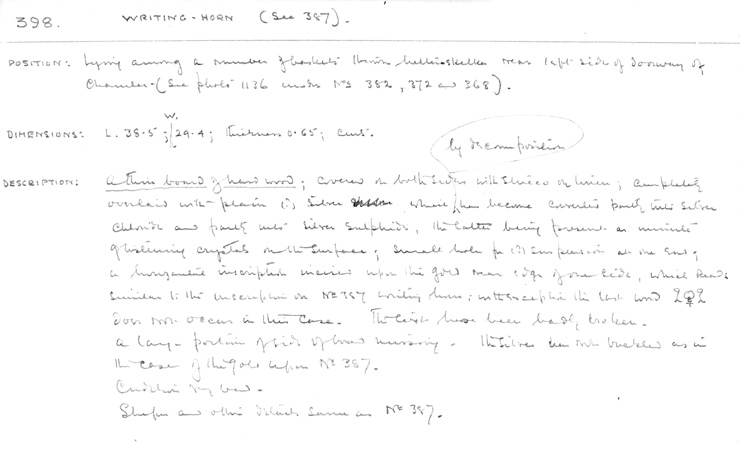 398. WRITING-HORN (See 387).
POSITION: Lying among a number of baskets thrown helter-skelter near left side of doorway of
Chamber - (See photo 1136 under Nos 382, 372 and 368).
DIMENSIONS: L. 38.5; W. 29.4; thickness 0.65; cent.
by decomposition
DESCRIPTION: A thin board of hard wood; covered on both sides with stucco on linen; completely
overlaid with plain (?) silver which has become converted partly into silver
chloride and partly into silver sulphide, the latter being present as minute
glistening crystals on the surface; small hole for (?) suspension at one end;
a horizontal inscription incised upon the gold near edge of one side, which reads
similar to the inscription on No 387 writing horn; with exception the last word
does not occur in this case. The have been badly broken.
a large portion of side of board missing. The silver has not buckled as in
the case of the gold upon No 387.
Condition very bad.
Shape and other details same as No 387.